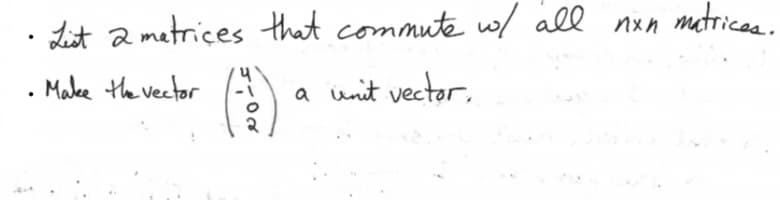 · List 2 matrices that commute w/ all nxn matrices.
· Make the vector (4 -1 0 2) a unit vector.